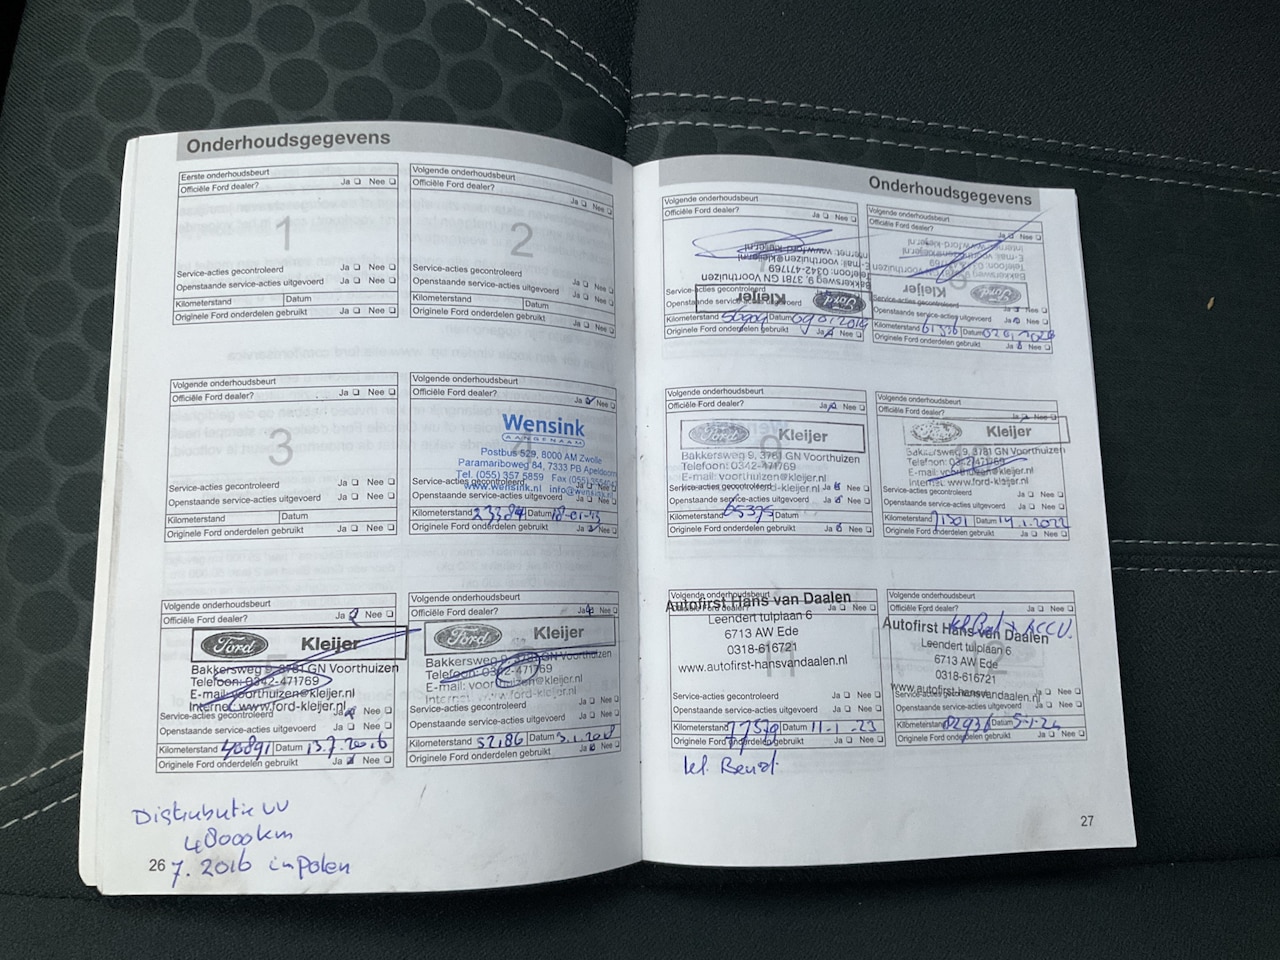 Onderhoudsgegevens
Eerste onderhoudsbeurt
Officiële Ford dealer? Ja Nee
1
Service-acties gecontroleerd Ja Nee
Openstaande service-acties uitgevoerd Ja Nee
Kilometerstand Datum
Originele Ford onderdelen gebruikt Ja Nee
Volgende onderhoudsbeurt
Officiële Ford dealer? Ja Nee
2
Service-acties gecontroleerd Ja Nee
Openstaande service-acties uitgevoerd Ja Nee
Kilometerstand Datum
Originele Ford onderdelen gebruikt Ja Nee
Volgende onderhoudsbeurt
Officiële Ford dealer? Ja Nee
3
Service-acties gecontroleerd Ja Nee
Openstaande service-acties uitgevoerd Ja Nee
Kilometerstand Datum
Originele Ford onderdelen gebruikt Ja Nee
Volgende onderhoudsbeurt
Officiële Ford dealer? Ja Nee
Wensink
AANGENAAM
Postbus 529, 8000 AM Zwolle
Paramariboweg 84, 7333 PB Apeldoorn
Tel. (055) 357 5859 Fax (055)
www.wensink.nl info@wensink
Service-acties gecontroleerd Ja Nee
Openstaande service-acties uitgevoerd Ja Nee
Kilometerstand 23384 Datum 18-01-13
Originele Ford onderdelen gebruikt Ja Nee
Volgende onderhoudsbeurt
Officiële Ford dealer? Ja Nee
Ford Kleijer
Bakkersweg 9, 3781 GN Voorthuizen
Telefoon: 0342-471769
E-mail: voorthuizen@kleijer.nl
Internet: www.ford-kleijer.nl
Service-acties gecontroleerd Ja Nee
Openstaande service-acties uitgevoerd Ja Nee
Kilometerstand 48891 Datum 13.7.2016
Originele Ford onderdelen gebruikt Ja Nee
Volgende onderhoudsbeurt
Officiële Ford dealer? Ja Nee
Ford Kleijer
Bakkersweg 9, 3781 GN Voorthuizen
Telefoon: 0342-471769
E-mail: voorthuizen@kleijer.nl
Internet: www.ford-kleijer.nl
Service-acties gecontroleerd Ja Nee
Openstaande service-acties uitgevoerd Ja Nee
Kilometerstand 52,86 Datum 3.1.2018
Originele Ford onderdelen gebruikt Ja Nee
Distributie VV
48000km
7. 2016 in Polen
26
Onderhoudsgegevens
Volgende onderhoudsbeurt
Officiële Ford dealer? Ja Nee
Internet: www.ford-kleijer.nl
E-mail: voorthuizen@kleijer.nl
Telefoon: 0342-471769
Bakkersweg 9, 3781 GN Voorthuizen
Service-acties gecontroleerd
Ford Kleijer
Openstaande service-acties uitgevoerd
Kilometerstand Datum
Originele Ford onderdelen gebruikt Ja Nee
Volgende onderhoudsbeurt
Officiële Ford dealer? Ja Nee
Internet: www.ford-kleijer.nl
E-mail: voorthuizen@kleijer.nl
Telefoon: 0342-471769
Bakkersweg 9, 3781 GN Voorthuizen
Ford Kleijer
Service-acties gecontroleerd Ja Nee
Openstaande service-acties uitgevoerd Ja Nee
Kilometerstand Datum
Originele Ford onderdelen gebruikt Ja Nee
Volgende onderhoudsbeurt
Officiële Ford dealer? Ja Nee
Ford Kleijer
Bakkersweg 9, 3781 GN Voorthuizen
Telefoon: 0342-471769
E-mail: voorthuizen@kleijer.nl
Service-acties gecontroleerd Ja Nee
Openstaande service-acties uitgevoerd Ja Nee
Kilometerstand 65395 Datum
Originele Ford onderdelen gebruikt Ja Nee
Volgende onderhoudsbeurt
Officiële Ford dealer? Ja Nee
Ford Kleijer
Bakkersweg 9, 3781 GN Voorthuizen
Telefoon: 0342-471769
E-mail: voorthuizen@kleijer.nl
Internet: www.ford-kleijer.nl
Service-acties gecontroleerd Ja Nee
Openstaande service-acties uitgevoerd Ja Nee
Kilometerstand 71501 Datum 14.1.2022
Originele Ford onderdelen gebruikt Ja Nee
Volgende onderhoudsbeurt
Autofirst Hans van Daalen
Officiële Ford dealer? Ja Nee
Leendert tulplaan 6
6713 AW Ede
0318-616721
www.autofirst-hansvandaalen.nl
Service-acties gecontroleerd Ja Nee
Openstaande service-acties uitgevoerd Ja Nee
Kilometerstand 77579 Datum 11-1-23
Originele Ford onderdelen gebruikt Ja Nee
kl. Beurt
Volgende onderhoudsbeurt
Officiële Ford dealer? Ja Nee
kl. Beurt + ACCU.
Autofirst Hans van Daalen
Leendert tulplaan 6
6713 AW Ede
0318-616721
www.autofirst-hansvandaalen.nl
Service-acties gecontroleerd Ja Nee
Openstaande service-acties uitgevoerd Ja Nee
Kilometerstand 82936 Datum 5-1-24
Originele Ford onderdelen gebruikt Ja Nee
27